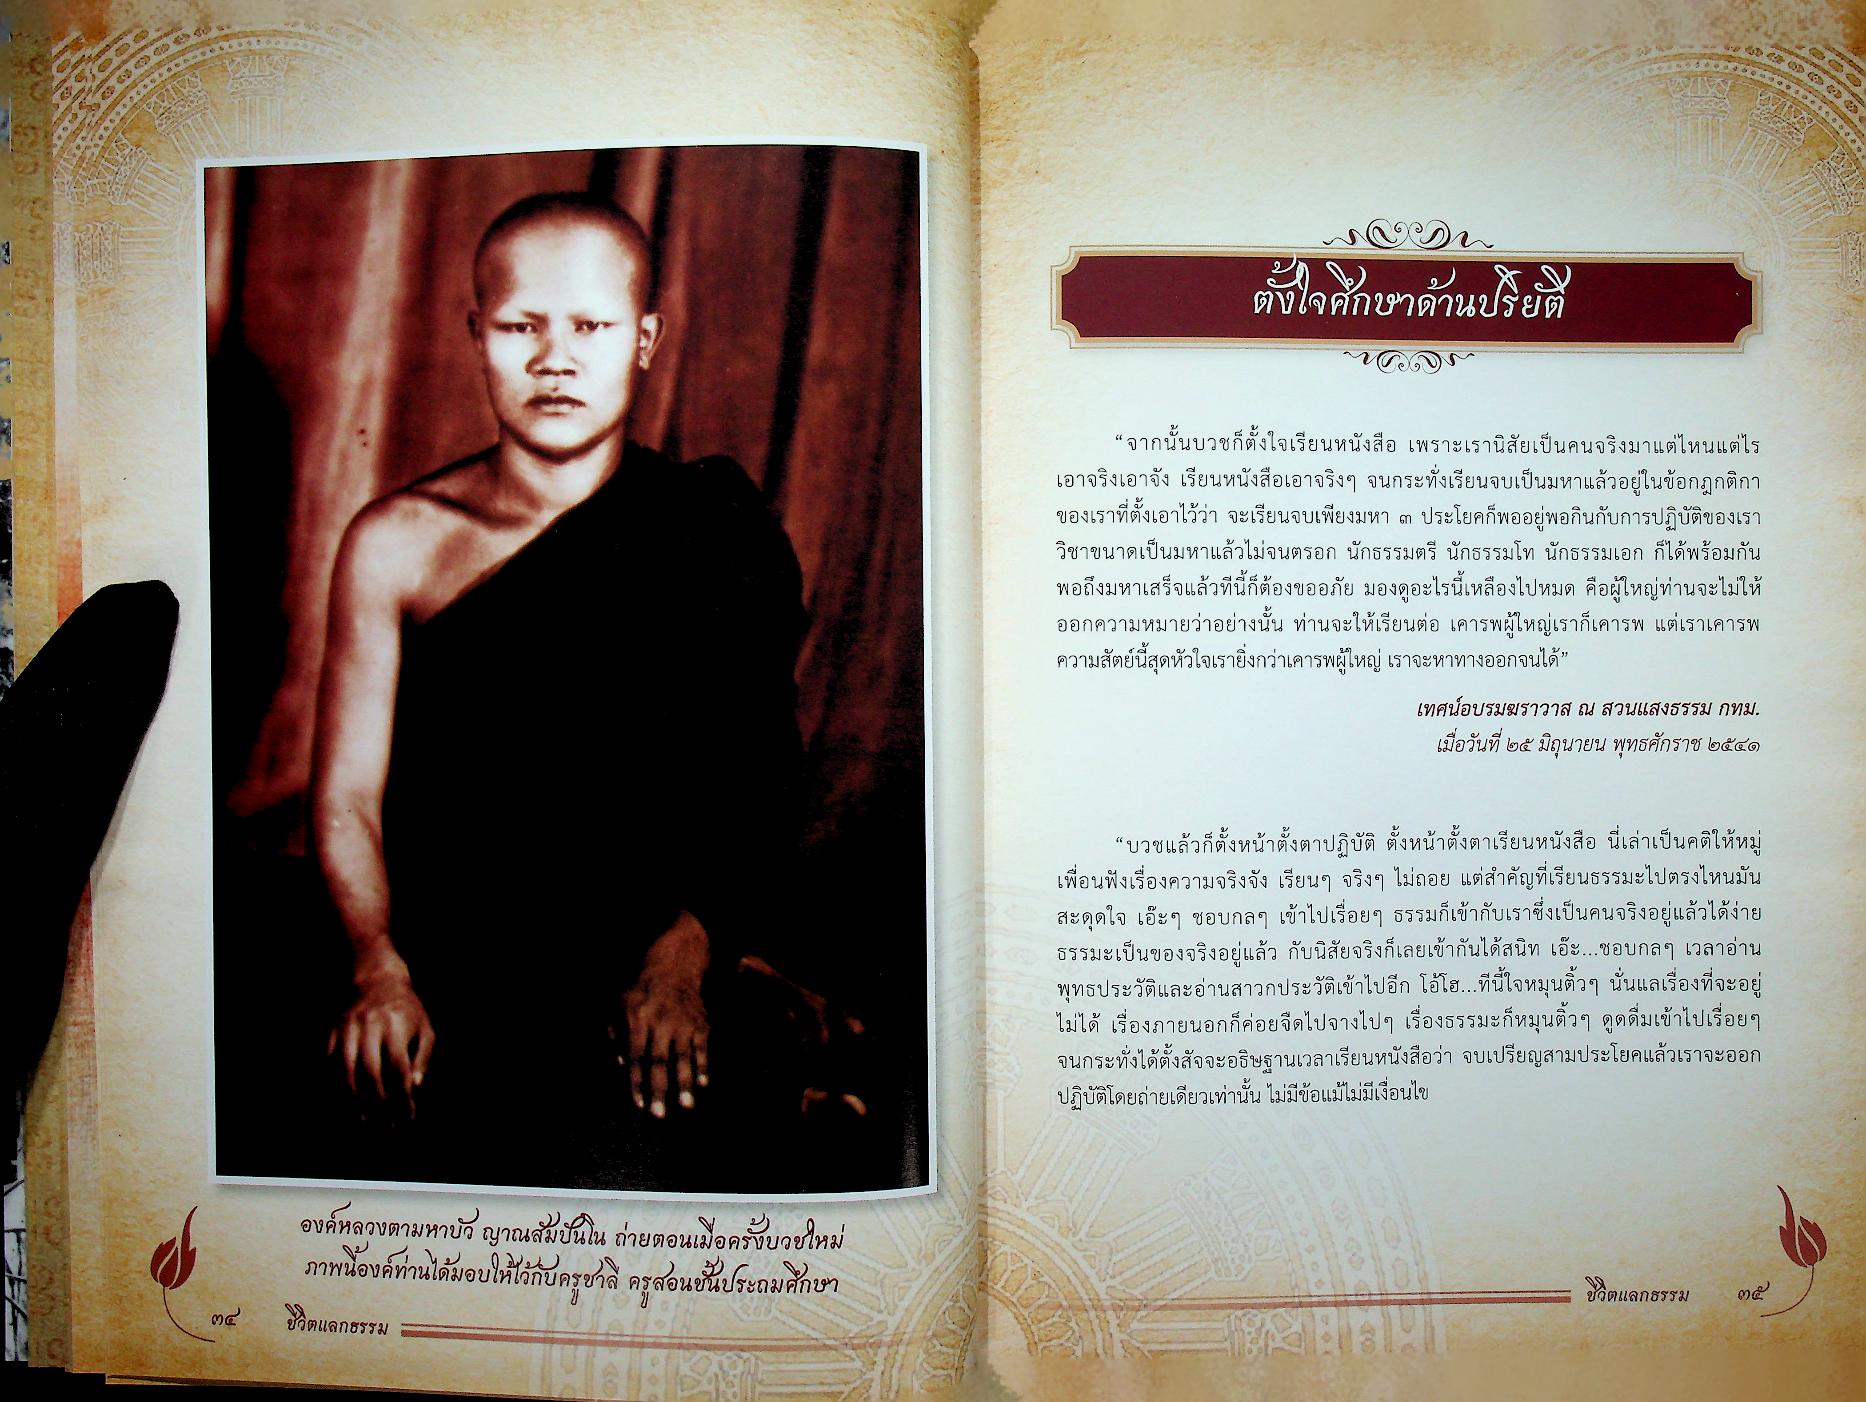 องค์หลวงตามหาบัว ญาณสัมปันโน ถ่ายตอนเมื่อครั้งบวชใหม่
ภาพนี้องค์ท่านได้มอบให้ไว้กับครูชาลี ครูสอนชั้นประถมศึกษา
๓๔ ชีวิตแลกธรรม
ตั้งใจศึกษาด้านปริยัติ
“จากนั้นบวชก็ตั้งใจเรียนหนังสือ เพราะเรานิสัยเป็นคนจริงมาแต่ไหนแต่ไร
เอาจริงเอาจัง เรียนหนังสือเอาจริงๆ จนกระทั่งเรียนจบเป็นมหาแล้วอยู่ในข้อกฎกติกา
ของเราที่ตั้งเอาไว้ว่า จะเรียนจบเพียงมหา ๓ ประโยคก็พออยู่พอกินกับการปฏิบัติของเรา
วิชาขนาดเป็นมหาแล้วไม่จนตรอก นักธรรมตรี นักธรรมโท นักธรรมเอก ก็ได้พร้อมกัน
พอถึงมหาเสร็จแล้วทีนี้ก็ต้องขออภัย มองดูอะไรนี้เหลืองไปหมด คือผู้ใหญ่ท่านจะไม่ให้
ออกความหมายว่าอย่างนั้น ท่านจะให้เรียนต่อ เคารพผู้ใหญ่เราก็เคารพ แต่เราเคารพ
ความสัตย์นี้สุดหัวใจเรายิ่งกว่าเคารพผู้ใหญ่ เราจะหาทางออกจนได้”
เทศน์อบรมฆราวาส ณ สวนแสงธรรม กทม.
เมื่อวันที่ ๒๕ มิถุนายน พุทธศักราช ๒๕๔๑
“บวชแล้วก็ตั้งหน้าตั้งตาปฏิบัติ ตั้งหน้าตั้งตาเรียนหนังสือ นี่เล่าเป็นคติให้หมู่
เพื่อนฟังเรื่องความจริงจัง เรียนๆ จริงๆ ไม่ถอย แต่สำคัญที่เรียนธรรมะไปตรงไหนมัน
สะดุดใจ เอ๊ะๆ ชอบกลๆ เข้าไปเรื่อยๆ ธรรมก็เข้ากับเราซึ่งเป็นคนจริงอยู่แล้วได้ง่าย
ธรรมะเป็นของจริงอยู่แล้ว กับนิสัยจริงก็เลยเข้ากันได้สนิท เอ๊ะ...ชอบกลๆ เวลาอ่าน
พุทธประวัติและอ่านสาวกประวัติเข้าไปอีก โอ้โฮ...ทีนี้ใจหมุนติ้วๆ นั่นแลเรื่องที่จะอยู่
ไม่ได้ เรื่องภายนอกก็ค่อยจืดไปจางไปๆ เรื่องธรรมะก็หมุนติ้วๆ ดูดดื่มเข้าไปเรื่อยๆ
จนกระทั่งได้ตั้งสัจจะอธิษฐานเวลาเรียนหนังสือว่า จบเปรียญสามประโยคแล้วเราจะออก
ปฏิบัติโดยถ่ายเดียวเท่านั้น ไม่มีข้อแม้ไม่มีเงื่อนไข
ชีวิตแลกธรรม ๓๕